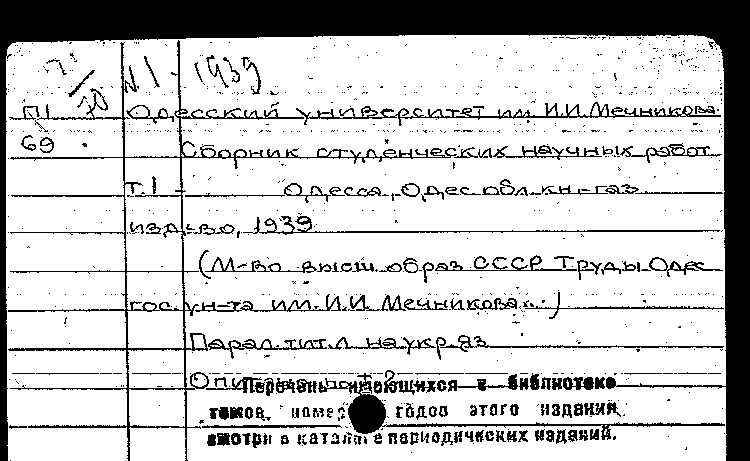 71/70 N1 - 1939
П1 Одесский университет им. И.И. Мечникова
69 Сборник студенческих научных работ
т.1 - Одесса, Одес обл. кн.-газ
изд-во, 1939
(М-во высш. образ СССР. Труды Одес
гос. ун-та им. И.И. Мечникова..)
Парал. тит. л на укр. яз
Перечень имеющихся в библиотеке
томов, годов этого издания
смотри в каталоге периодических изданий.